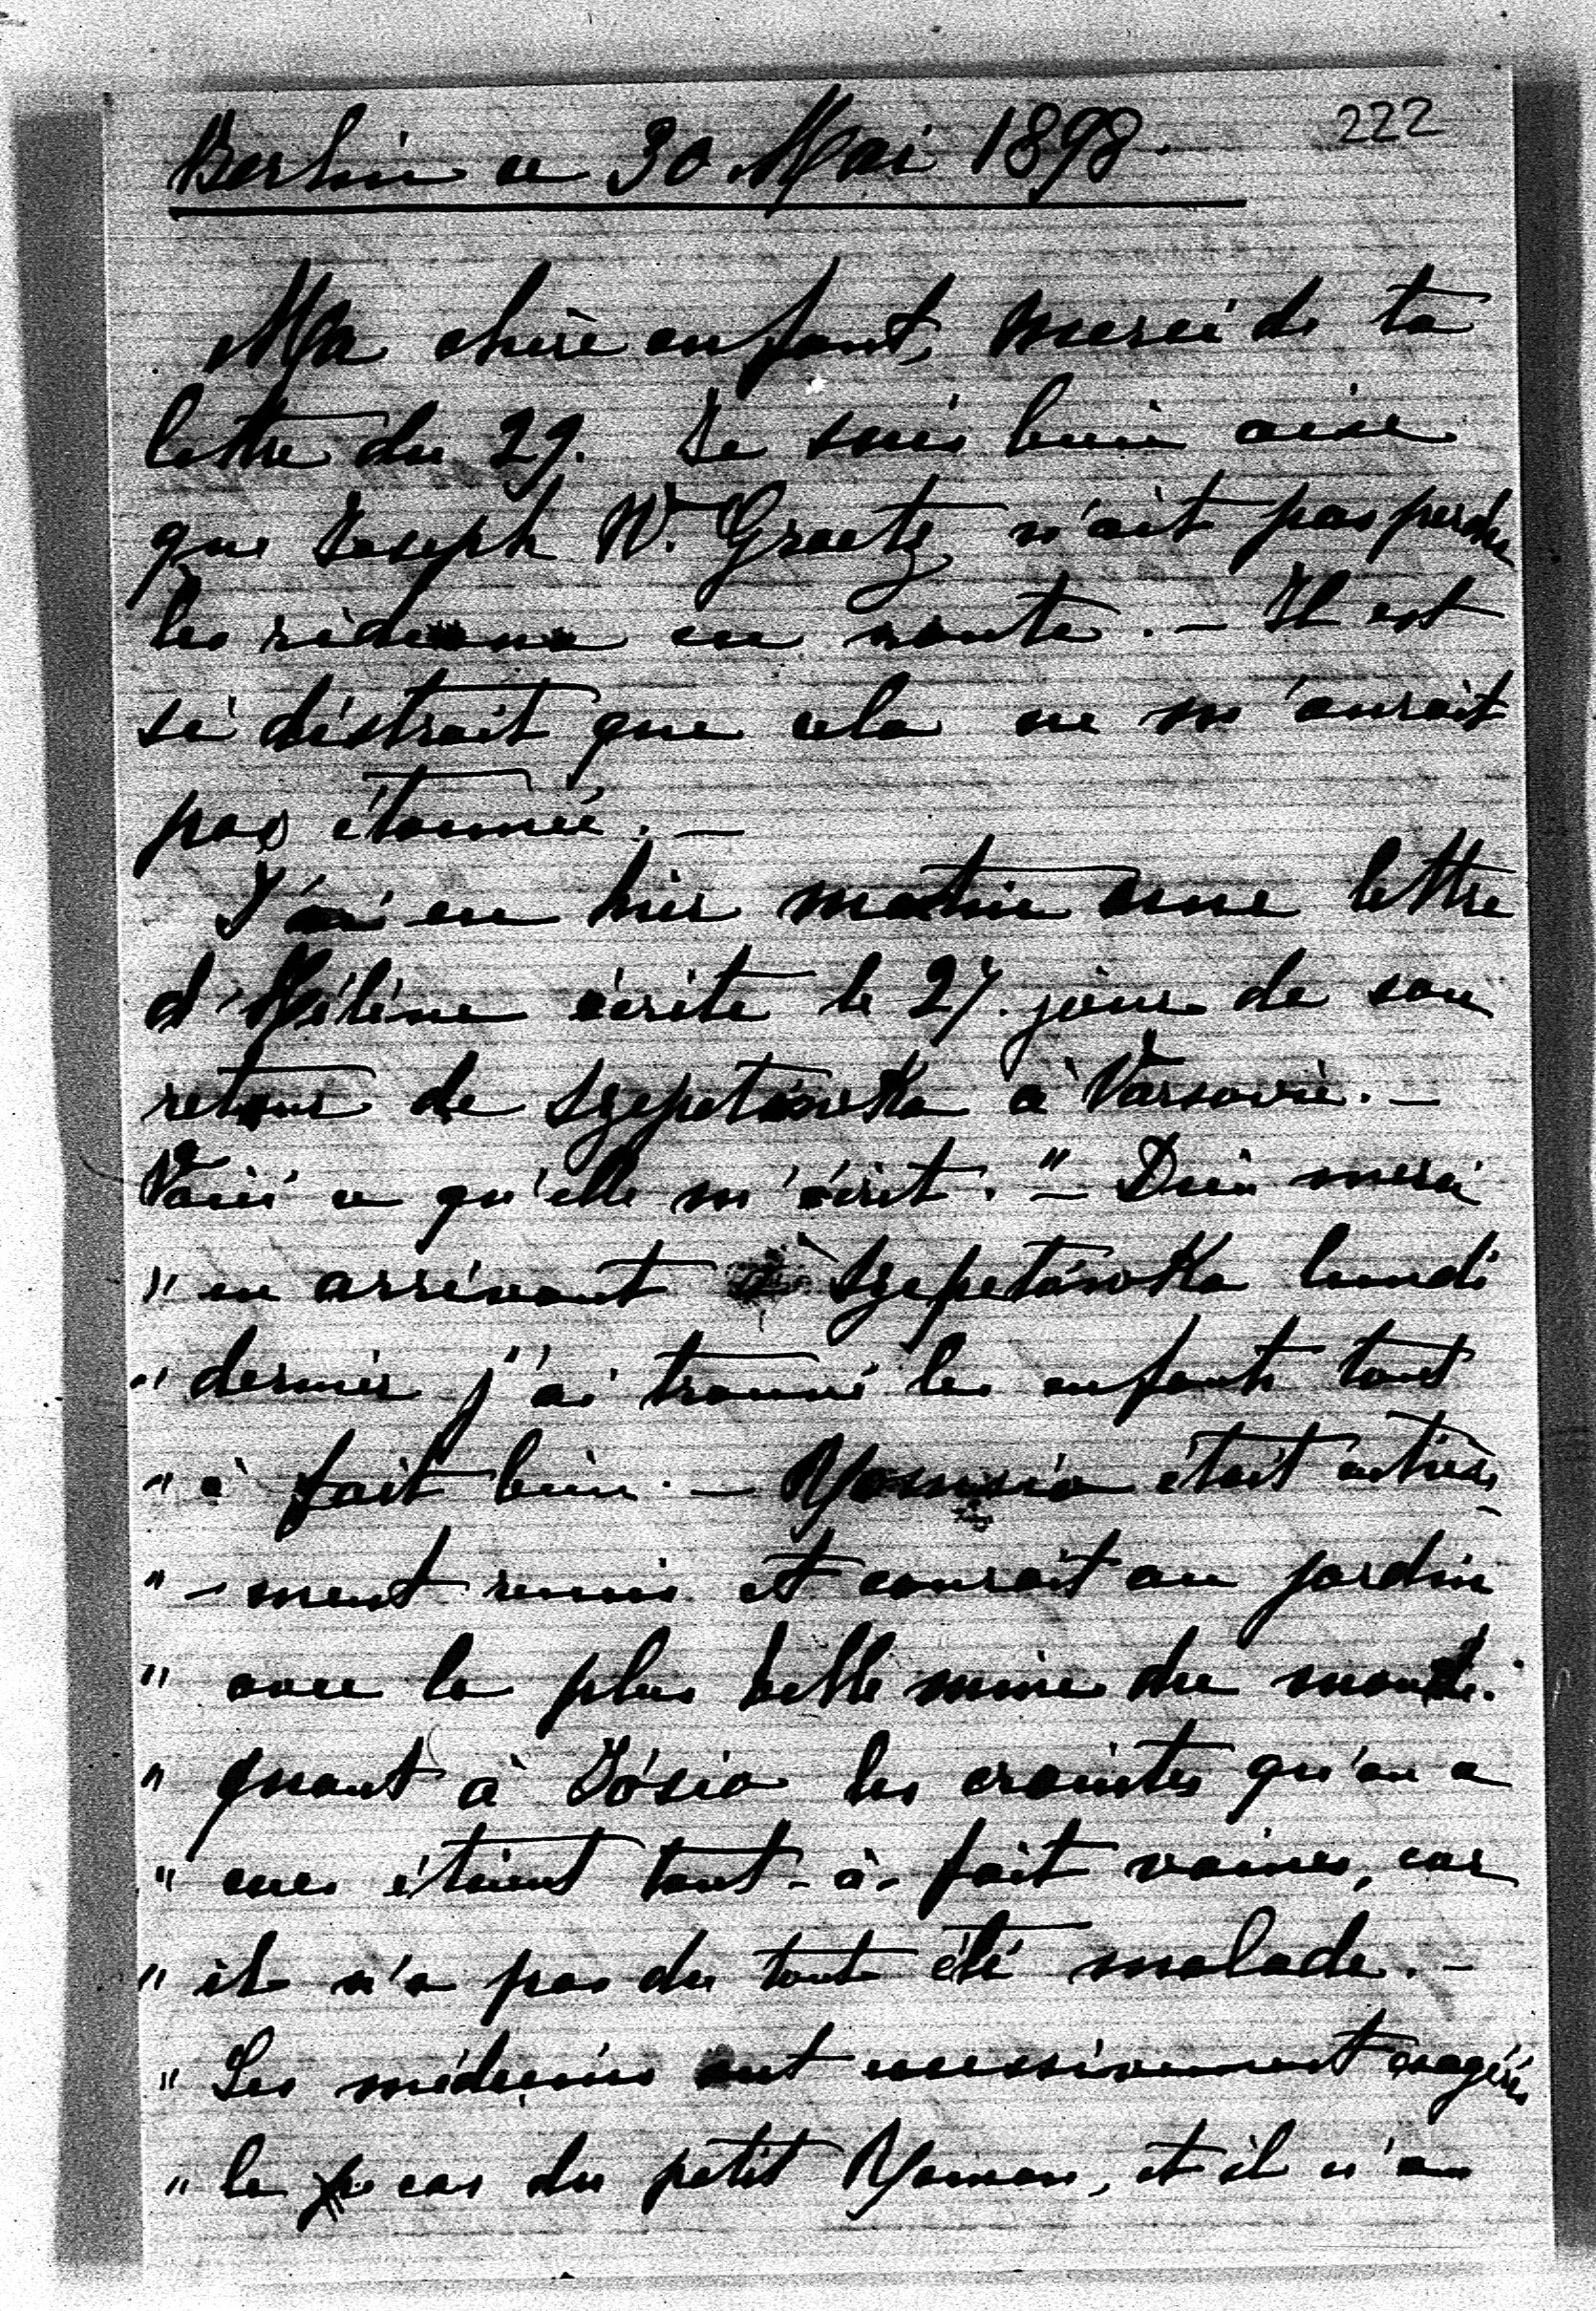 222
Berlin ce 30 Mai 1898.
Ma chère enfant, merci de ta
lettre du 29. Je suis bien aise
que Joseph W. Graetz n'ait pas perdu
les rideaux en route. – Il est
si distrait que cela ne m'aurait
pas étonnée. –
J'ai eu hier matin une lettre
d'Hélène écrite le 27. jour de son
retour de Szepetówka à Varsovie. –
Voici ce qu'elle m'écrit. "– Dieu merci
" en arrivant à Szepetówka lundi
" dernier j'ai trouvé les enfants tout
" à fait bien. – était entière-
" -ment remis et courait au jardin
" avec la plus belle mine du monde.
" Quant à Józio les craintes qu'on a
" eues étaient tout-à-fait vaines, car
" il n'a pas du tout été malade. –
" Les médecins ont excessivement exagéré
" le cas du petit Roman, et il n'a